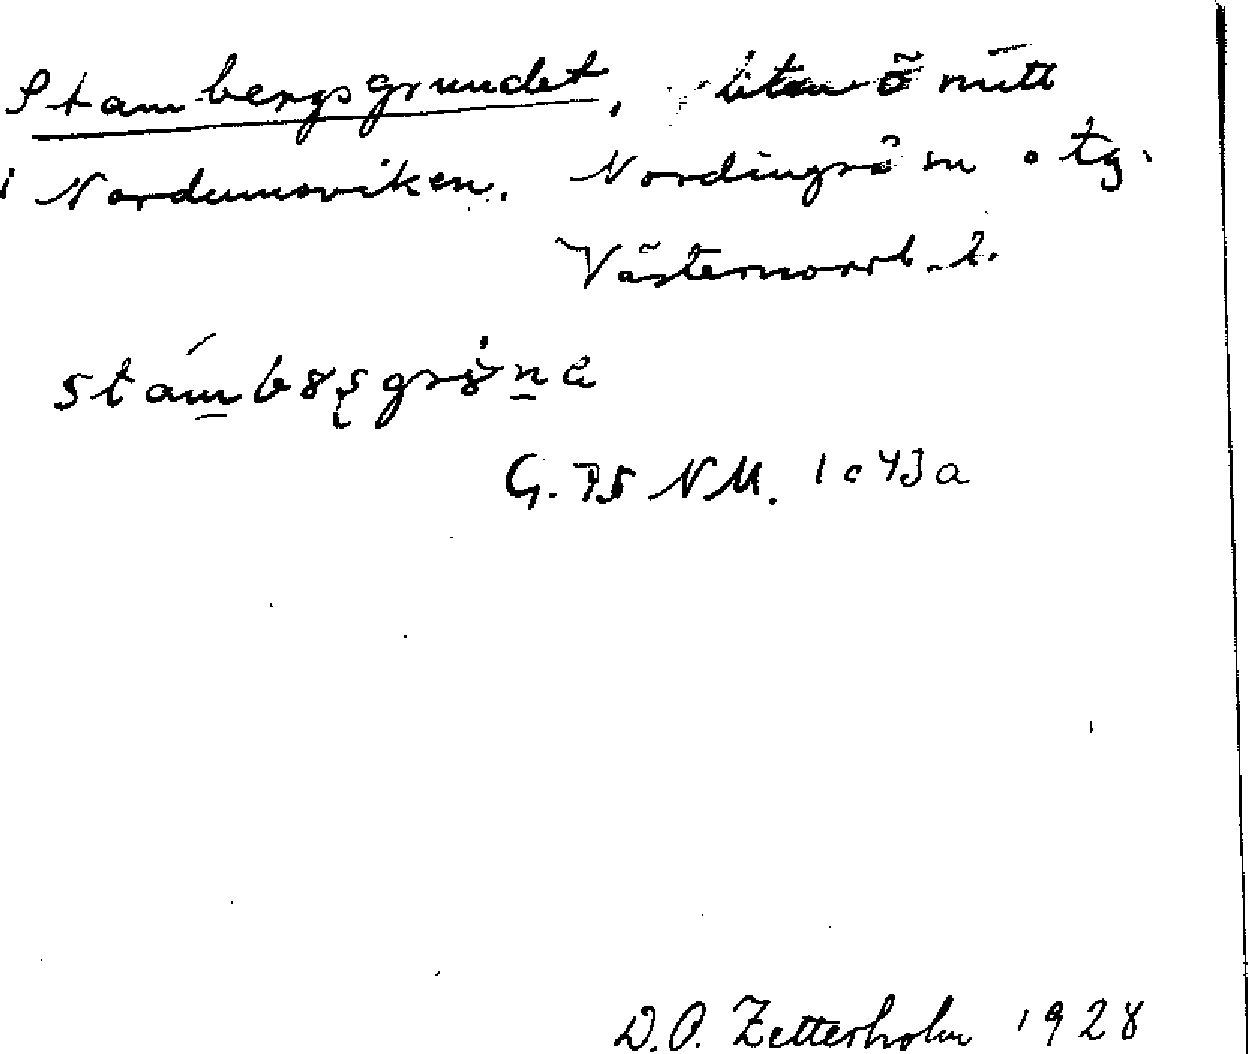 Stambergsgrundet, liten ö mitt
i Nordumsviken. Nordingrå sn o tg.
Västernorrl. l.
G. 75 NM. 1043a
D.O. Zetterholm 1928